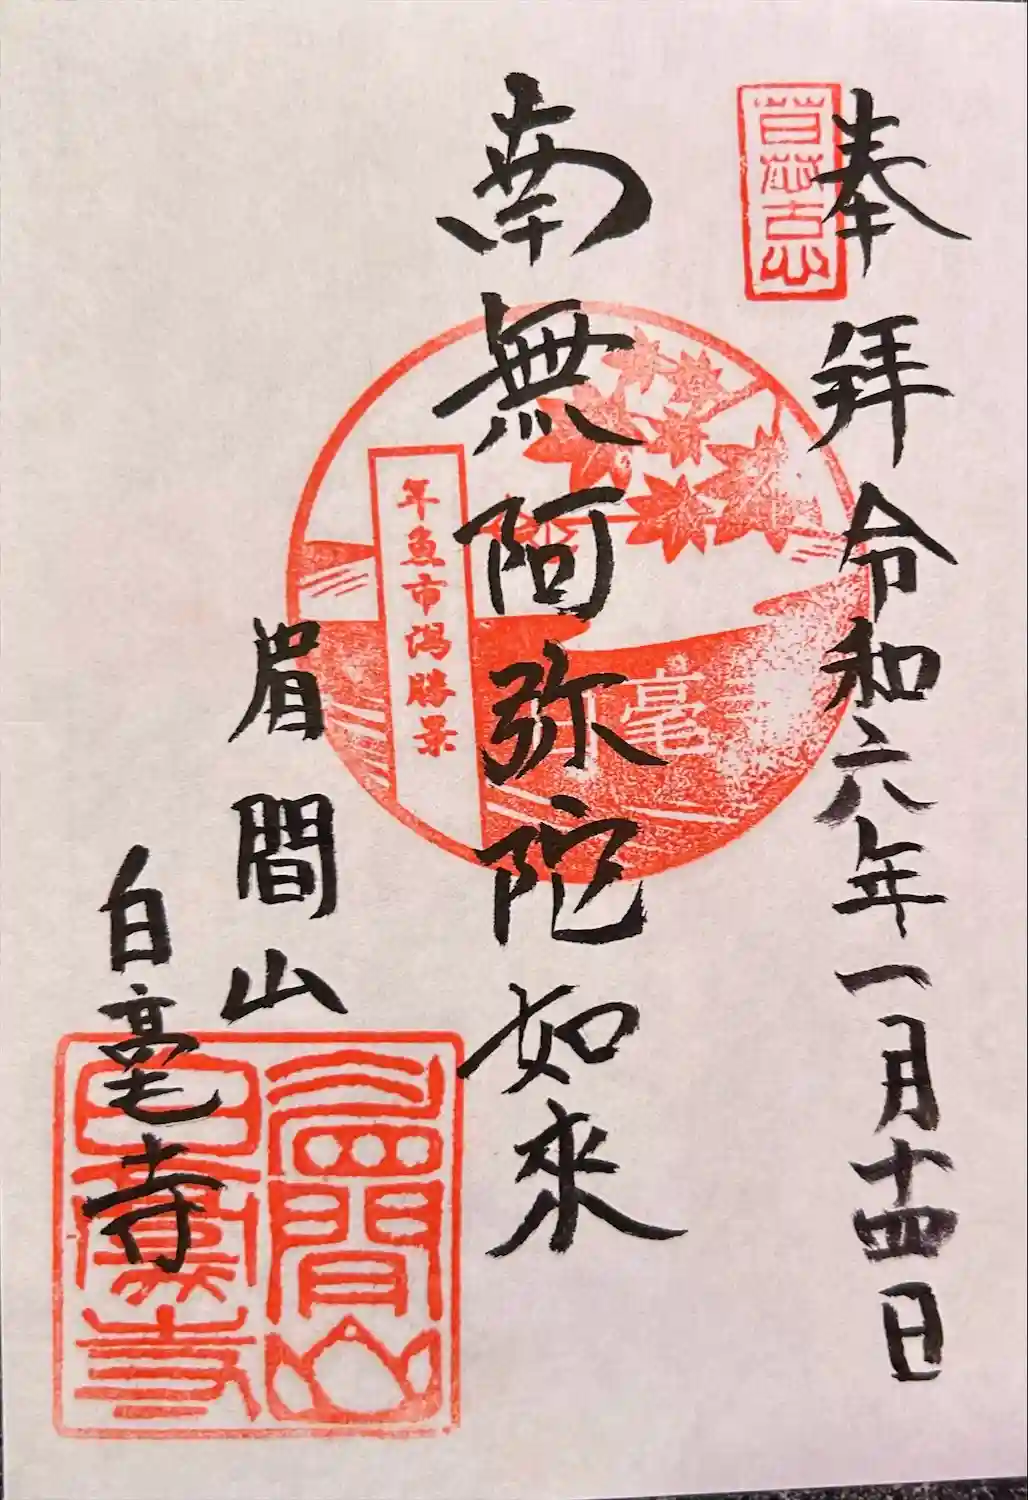 奉拜 令和六年一月十四日
南無阿弥陀如來
眉間山
白毫寺
年魚市潟勝景
白毫
眉間山
白毫寺